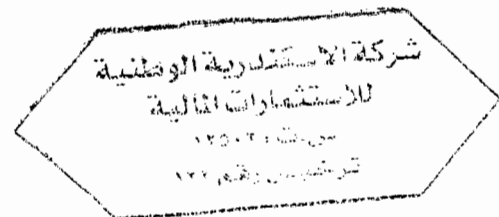 شركة الإسكندرية الوطنية
للاستثمارات المالية
س.ت : ١٢٥٠٣
ترخيص رقم ١٢٢